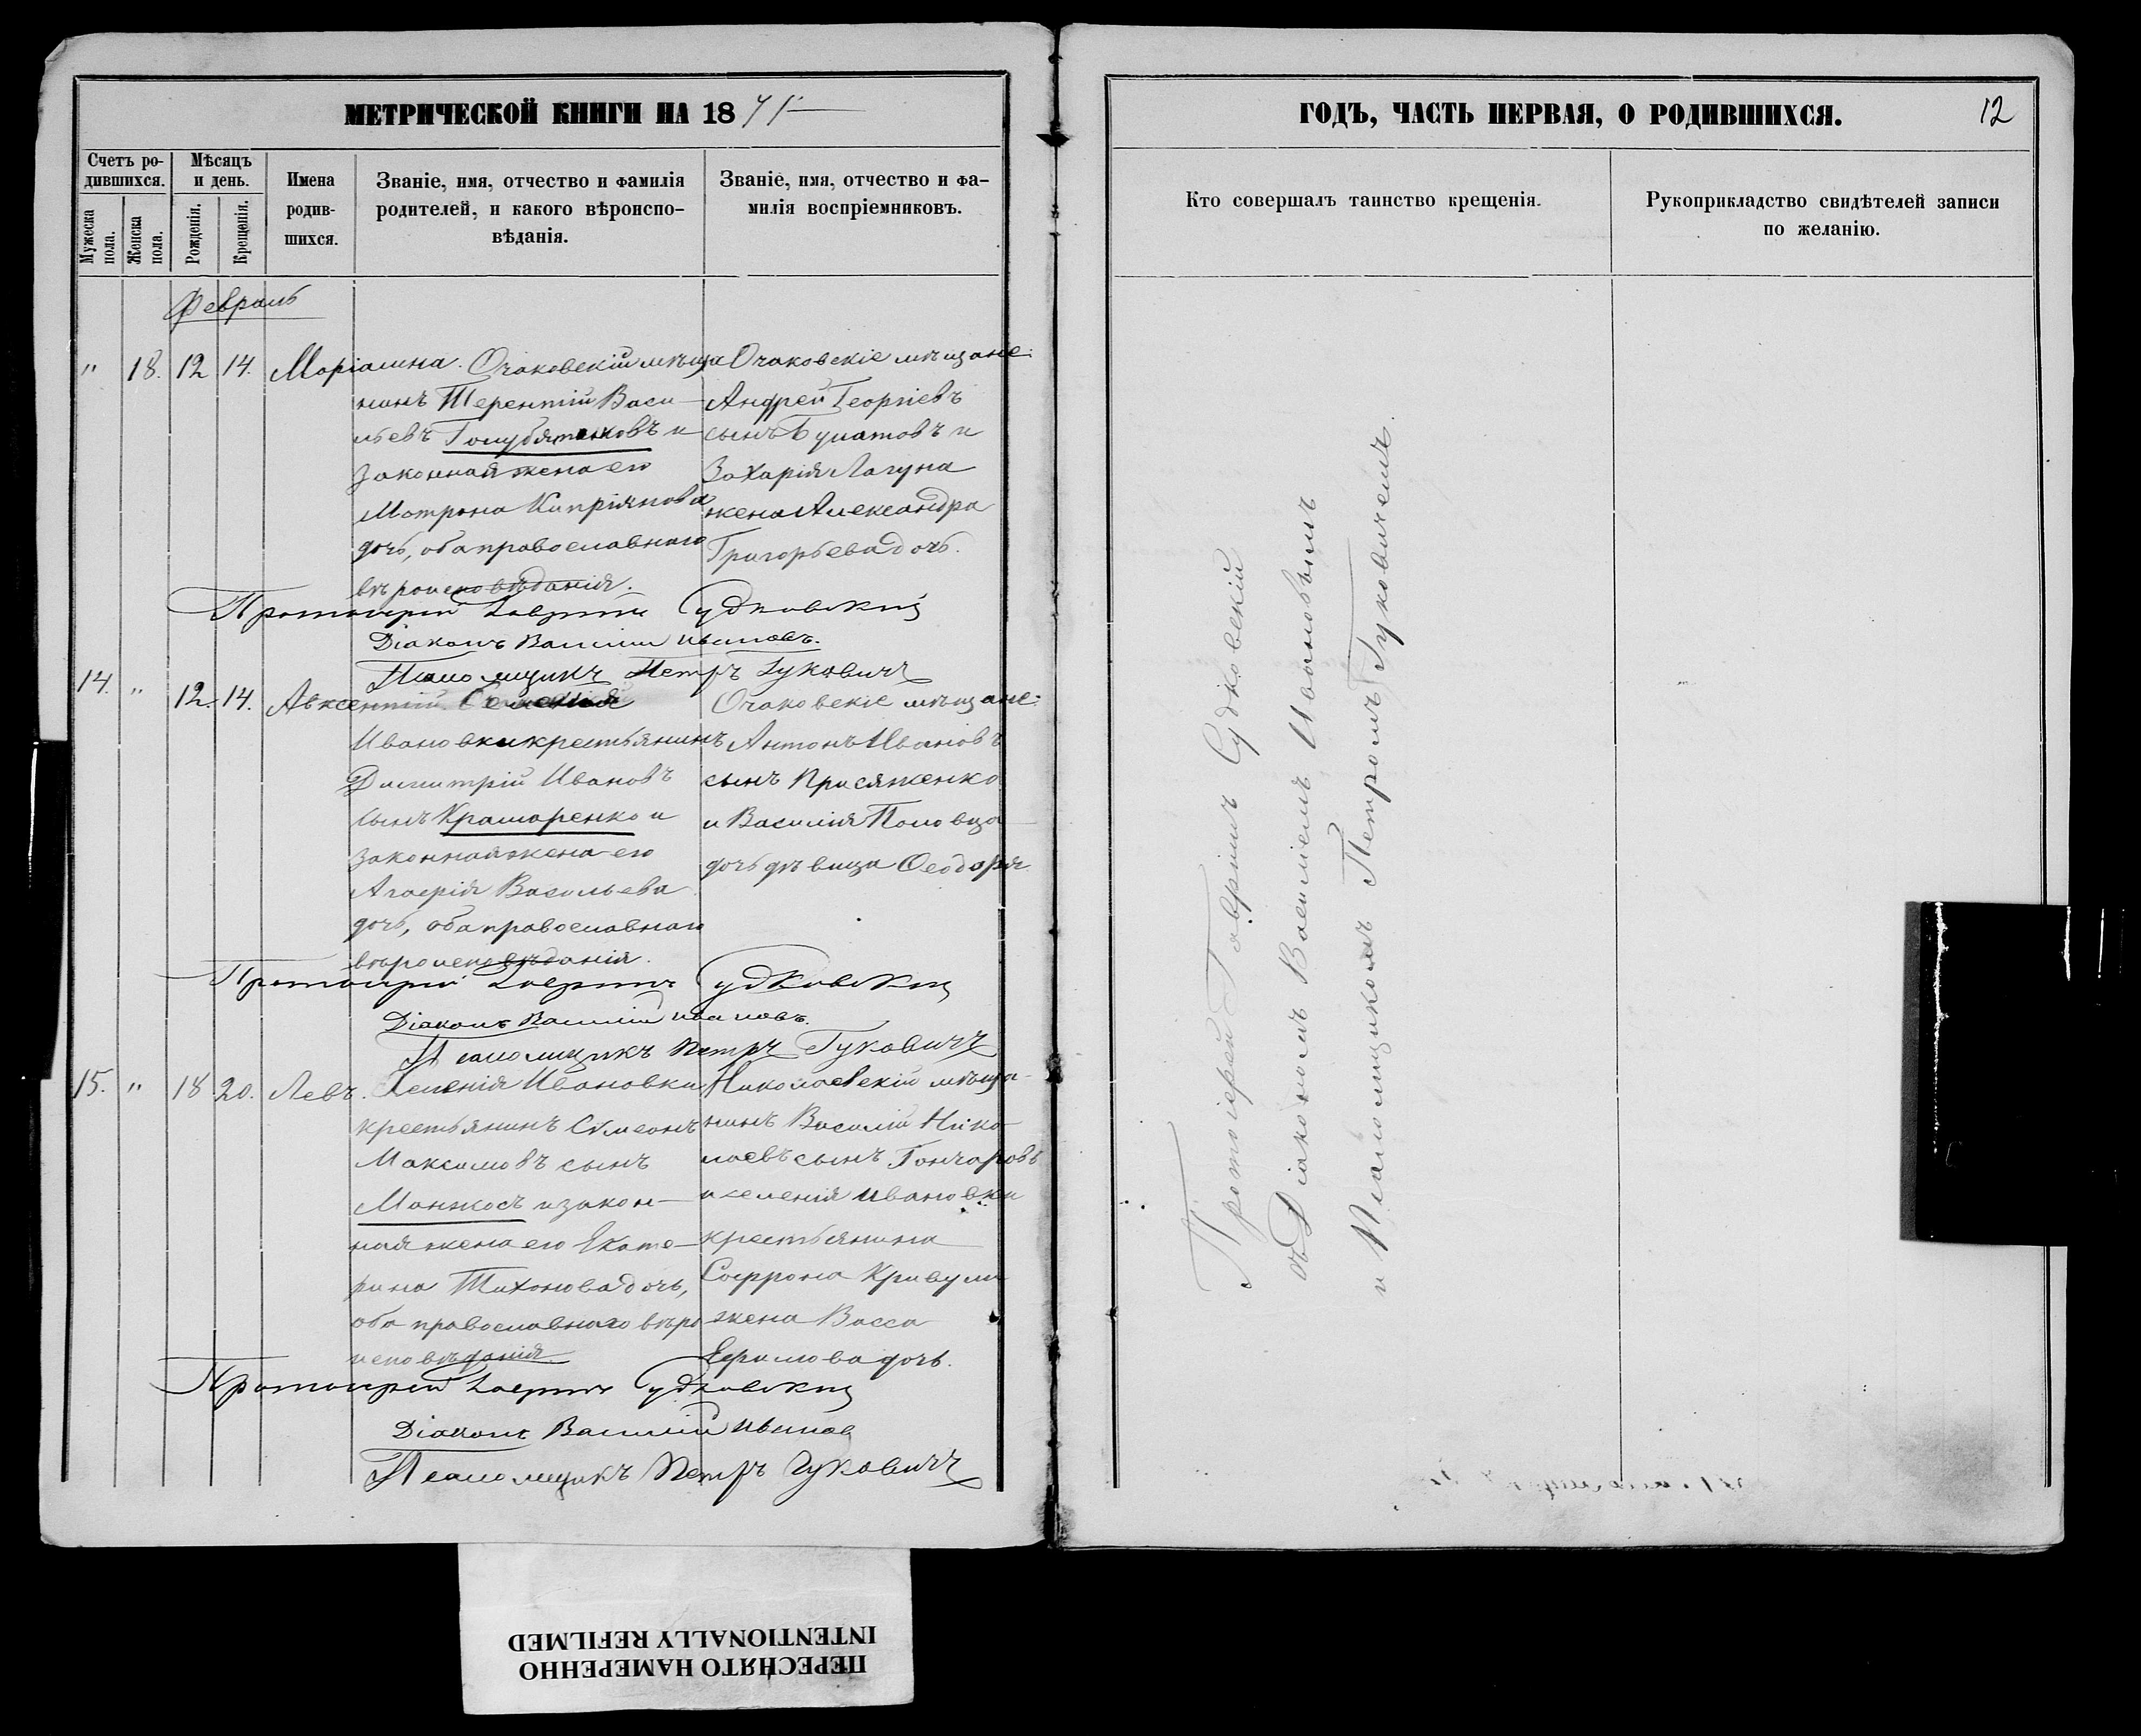 МЕТРИЧЕСКОЙ КНИГИ НА 1875
Счетъ ро-
дившихся.
Мужеска пола.
Женска пола.
Мѣсяцъ
и день.
Рожденія.
Крещенія.
Имена
родив-
шихся.
Званіе, имя, отчество и фамилія
родителей, и какого вѣроиспо-
вѣданія.
Званіе, имя, отчество и фа-
милія воспріемниковъ.
Февраль
" 18. 12 14. Маріамна.
Очаковскій мѣща
нинъ Терентій Васи-
льевъ Голубятниковъ и
законная жена его
Матрона Кипріянова
дочь, оба православнаго
вѣроисповѣданія.
Очаковскіе мѣщане:
Андрей Георгіевъ
сынъ Булатовъ и
Захарія Лагуна
жена Александра
Григорьева дочь.
Протоіерей Гавріилъ Судковскій
Діаконъ Василій Ивановъ.
Псаломщикъ Петръ Гуковичъ
14. " 12. 14. Авксентій.
Селенія
Ивановки крестьянинъ
Димитрій Ивановъ
сынъ Крамаренко и
законная жена его
Агафія Васильева
дочь, оба православнаго
вѣроисповѣданія.
Очаковскіе мѣщане:
Антонъ Ивановъ
сынъ Присяженко
и Василія Половца
дочь дѣвица Ѳеодора.
Протоіерей Гавріилъ Судковскій
Діаконъ Василій Ивановъ.
Псаломщикъ Петръ Гуковичъ
15. " 18 20. Левъ.
Селенія Ивановки
крестьянинъ Симеонъ
Максимовъ сынъ
Манжосъ и закон-
ная жена его Екате-
рина Тихонова дочь,
оба православнаго вѣро
исповѣданія.
Николаевскій мѣща-
нинъ Василій Нико-
лаевъ сынъ Гончаровъ
и селенія Ивановки
крестьянина
Софрона Кривули
жена Васса
Ефимова дочь.
Протоіерей Гавріилъ Судковскій
Діаконъ Василій Ивановъ
Псаломщикъ Петръ Гуковичъ
ГОДЪ, ЧАСТЬ ПЕРВАЯ, О РОДИВШИХСЯ.
12
Кто совершалъ таинство крещенія.
Рукоприкладство свидѣтелей записи
по желанію.
Протоіерей Гавріилъ Судковскій
съ Діакономъ Василіемъ Ивановымъ
и Псаломщикомъ Петромъ Гуковичемъ.
ПЕРЕСНЯТО НАМЕРЕННО
INTENTIONALLY REFILMED